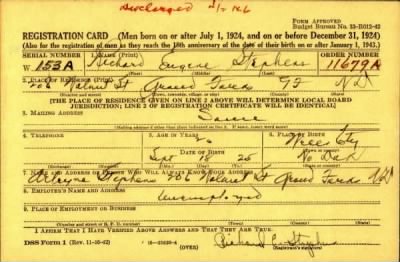 Discharged
Form Approved
Budget Bureau No. 33-R012-42
REGISTRATION CARD—(Men born on or after July 1, 1924, and on or before December 31, 1924)
(Also for the registration of men as they reach the 18th anniversary of the date of their birth on or after January 1, 1943.)
SERIAL NUMBER 1. NAME (Print) ORDER NUMBER
W 153A Richard Eugene Stephens 11679A
2. PLACE OF RESIDENCE (Print)
206 Walnut St Grand Forks GF ND
[THE PLACE OF RESIDENCE GIVEN ON LINE 2 ABOVE WILL DETERMINE LOCAL BOARD
JURISDICTION; LINE 2 OF REGISTRATION CERTIFICATE WILL BE IDENTICAL]
3. MAILING ADDRESS
Same
[Mailing address if other than place indicated on line 2. If same, insert word same]
4. TELEPHONE 5. AGE IN YEARS 6. PLACE OF BIRTH
DATE OF BIRTH
Sept 18 25 No Dak
7. NAME AND ADDRESS OF PERSON WHO WILL ALWAYS KNOW YOUR ADDRESS
Stephens 206 Walnut St Grand Forks ND
8. EMPLOYER'S NAME AND ADDRESS
unemployed
9. PLACE OF EMPLOYMENT OR BUSINESS
I AFFIRM THAT I HAVE VERIFIED ABOVE ANSWERS AND THAT THEY ARE TRUE.
DSS Form 1 (Rev. 11-16-42) (OVER) Richard E Stephens
(Registrant's signature)